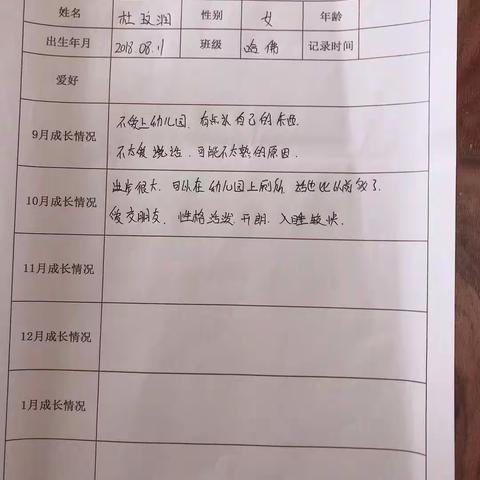 姓名 杜玟润 性别 女 年龄
出生年月 2018.08.11 班级 哈佛 记录时间
爱好
9月成长情况
不爱上幼儿园，有点认自己的东西.
不太爱说话，可能不太熟的原因.
10月成长情况
进步很大，可以在幼儿园上厕所，话也比以前多了.
爱交朋友，性格活泼、开朗，入睡较快.
11月成长情况
12月成长情况
1月成长情况